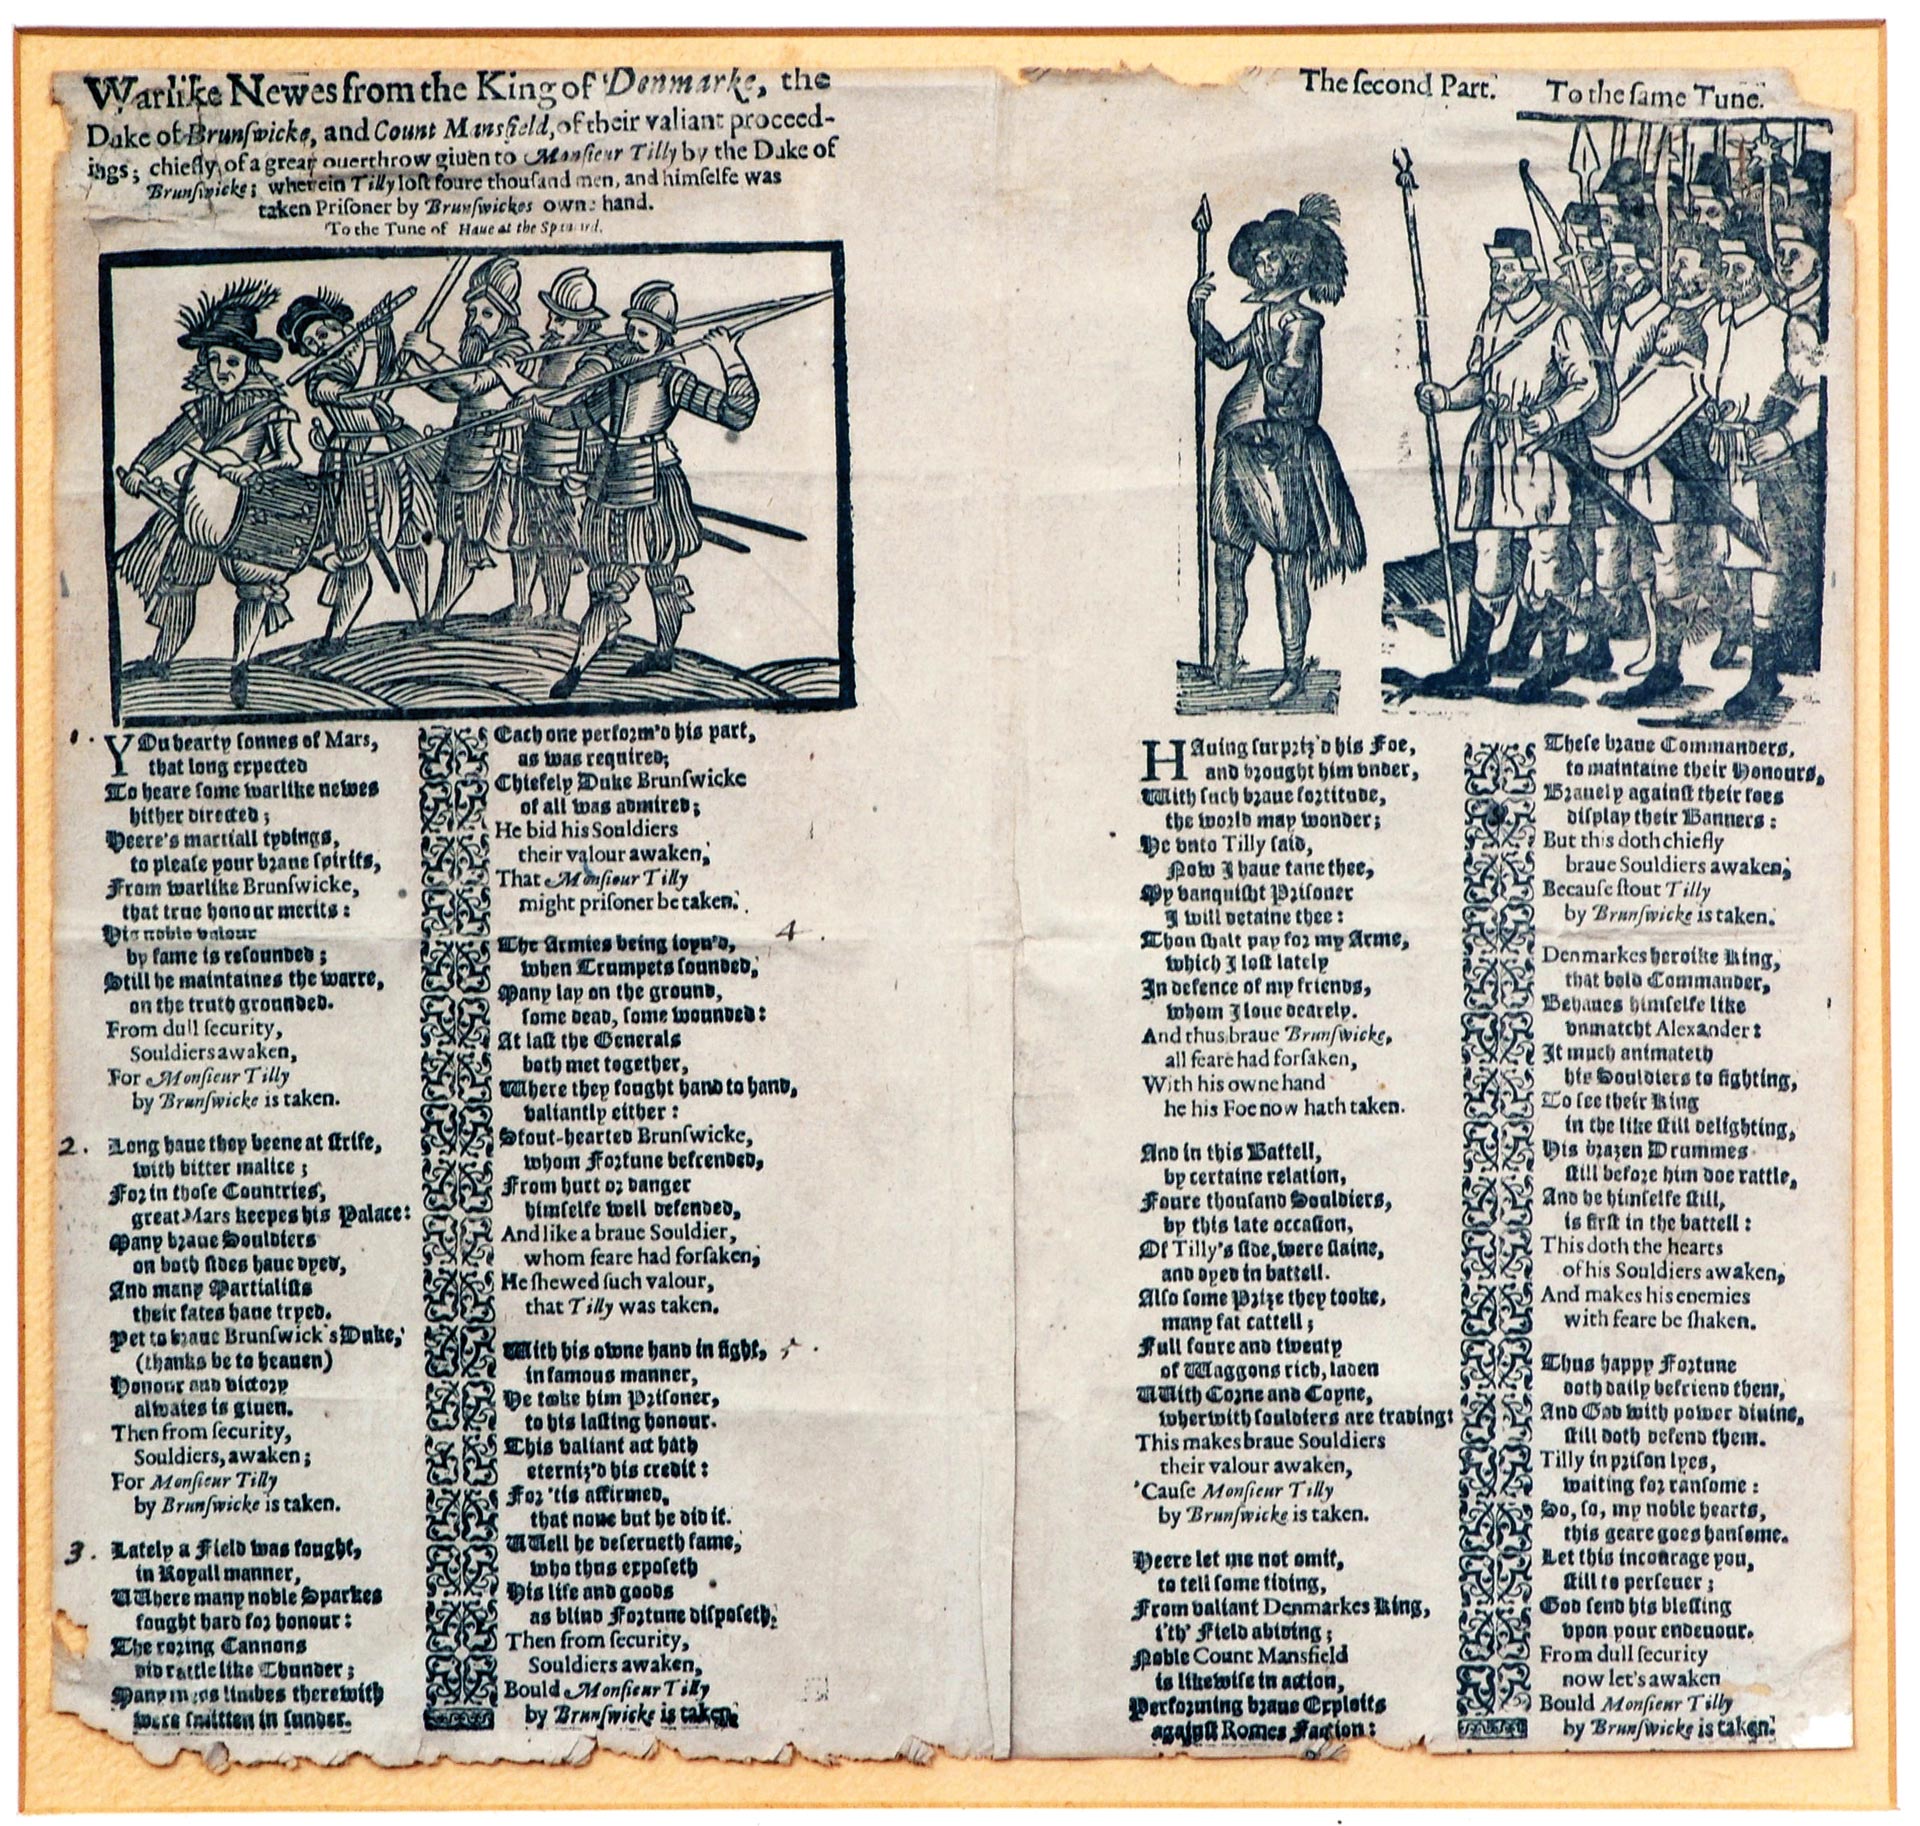 Warlike Newes from the King of Denmarke, the
Duke of Brunſwicke, and Count Mansfield, of their valiant proceed-
ings; chiefly of a great ouerthrow giuen to Monſieur Tilly by the Duke of
Brunſwicke; wherein Tilly loſt foure thouſand men, and himſelfe was
taken Priſoner by Brunſwickes owne hand.
To the Tune of Haue at the
1.
YOu hearty ſonnes of Mars,
that long expected
To heare ſome warlike newes
hither directed;
Heere's martiall tydings,
to pleaſe your braue ſpirits,
From warlike Brunſwicke,
that true honour merits:
His noble valour
by fame is reſounded;
Still he maintaines the warre,
on the truth grounded.
From dull ſecurity,
Souldiers awaken,
For Monſieur Tilly
by Brunſwicke is taken.
2.
Long haue they beene at ſtrife,
with bitter malice;
For in thoſe Countries,
great Mars keepes his Palace:
Many braue Souldiers
on both ſides haue dyed,
And many Martialiſts
their fates haue tryed.
Yet to braue Brunſwick's Duke,
(thanks be to heauen)
Honour and victory
alwaies is giuen.
Then from ſecurity,
Souldiers, awaken;
For Monſieur Tilly
by Brunſwicke is taken.
3.
Lately a Field was fought,
in Royall manner,
Where many noble Sparkes
fought hard for honour:
The roring Cannons
did rattle like Thunder;
Many mens limbes therewith
were ſmitten in ſunder.
Each one perform'd his part,
as was required;
Chiefely Duke Brunſwicke
of all was admired;
He bid his Souldiers
their valour awaken,
That Monſieur Tilly
might priſoner be taken.
4.
The Armies being ioyn'd,
when Trumpets ſounded,
Many lay on the ground,
ſome dead, ſome wounded:
At laſt the Generals
both met together,
Where they fought hand to hand,
valiantly either:
Stout-hearted Brunſwicke,
whom Fortune befrended,
From hurt or danger
himſelfe well defended,
And like a braue Souldier,
whom feare had forſaken,
He ſhewed ſuch valour,
that Tilly was taken.
5.
With his owne hand in fight,
in famous manner,
He tooke him Priſoner,
to his laſting honour.
This valiant act hath
eterniz'd his credit:
For 'tis affirmed,
that none but he did it.
Well he deſerueth fame,
who thus expoſeth
His life and goods
as blind Fortune diſpoſeth.
Then from ſecurity,
Souldiers awaken,
Bould Monſieur Tilly
by Brunſwicke is taken.
The ſecond Part. To the ſame Tune.
HAuing ſurpriz'd his Foe,
and brought him vnder,
With ſuch braue fortitude,
the world may wonder;
He vnto Tilly ſaid,
Now I haue tane thee,
My vanquiſht Priſoner
I will detaine thee:
Thou ſhalt pay for my Arme,
which I loſt lately
In defence of my friends,
whom I loue dearely.
And thus braue Brunſwicke,
all feare had forſaken,
With his owne hand
he his Foe now hath taken.
And in this Battell,
by certaine relation,
Foure thouſand Souldiers,
by this late occaſion,
Of Tilly's ſide, were ſlaine,
and dyed in battell.
Alſo ſome Prize they tooke,
many fat cattell;
Full foure and twenty
of Waggons rich, laden
With Corne and Coyne,
wherwith ſouldiers are trading:
This makes braue Souldiers
their valour awaken,
'Cauſe Monſieur Tilly
by Brunſwicke is taken.
Heere let me not omit,
to tell ſome tiding,
From valiant Denmarkes King,
i'th' Field abiding;
Noble Count Mansfield
is likewiſe in action,
Performing braue Exploits
againſt Romes Faction:
Theſe braue Commanders,
to maintaine their Honours,
Brauely againſt their foes
diſplay their Banners:
But this doth chiefly
braue Souldiers awaken,
Becauſe ſtout Tilly
by Brunſwicke is taken.
Denmarkes heroike King,
that bold Commander,
Behaues himſelfe like
vnmatcht Alexander:
It much animateth
his Souldiers to fighting,
To ſee their King
in the like ſtill delighting,
His brazen Drummes
ſtill before him doe rattle,
And he himſelfe ſtill,
is firſt in the battell:
This doth the hearts
of his Souldiers awaken,
And makes his enemies
with feare be ſhaken.
Thus happy Fortune
doth daily befriend them,
And God with power diuine,
ſtill doth defend them.
Tilly in priſon lyes,
waiting for ranſome:
So, ſo, my noble hearts,
this geare goes hanſome.
Let this incourage you,
ſtill to perſeuer;
God ſend his bleſſing
vpon your endeuour.
From dull ſecurity
now let's awaken
Bould Monſieur Tilly
by Brunſwicke is taken.